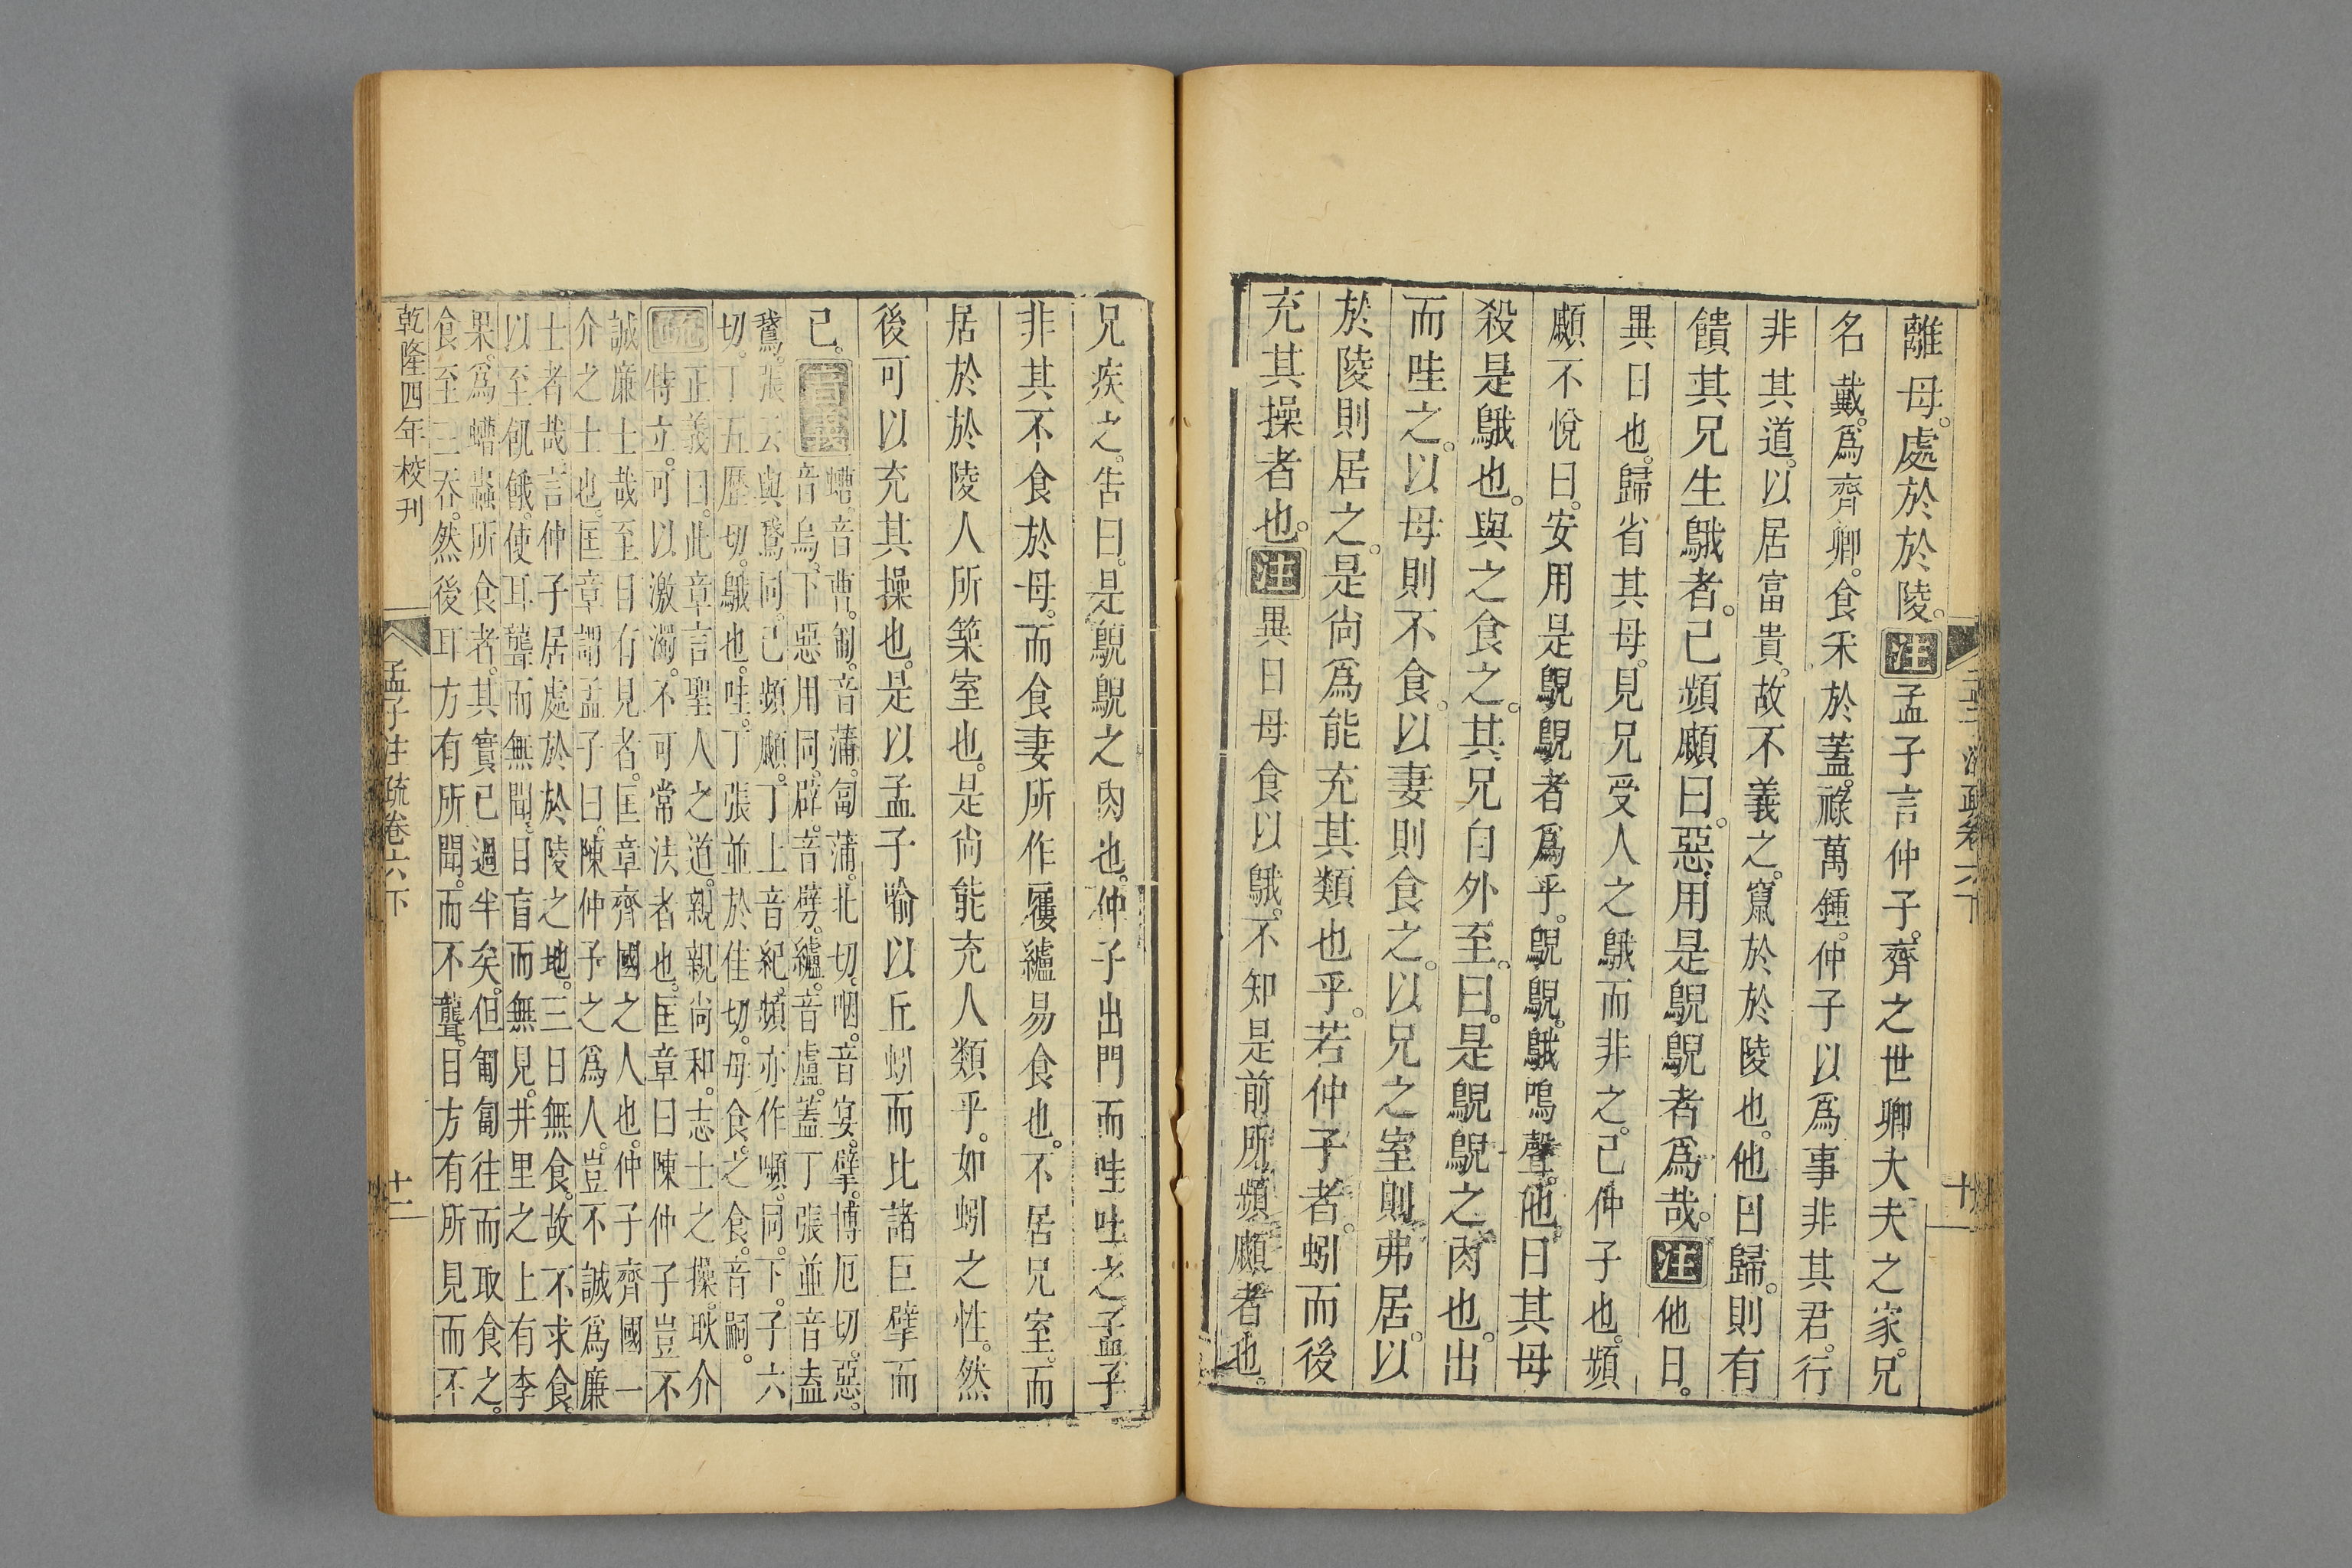 離母。處於於陵。注孟子言仲子。齊之世卿大夫之家。兄
名戴。爲齊卿。食采於蓋。祿萬鍾。仲子以爲事非其君。行
非其道。以居富貴。故不義之。竄於於陵也。他日歸。則有
饋其兄生鵝者。己頻顣曰。惡用是鶃鶃者爲哉。注他日。
異日也。歸省其母。見兄受人之鵝而非之。己仲子也。頻
顣不悅曰。安用是鶃鶃者爲乎。鶃鶃。鵝鳴聲。他日其母
殺是鵝也。與之食之。其兄自外至。曰。是鶃鶃之肉也。出
而哇之。以母則不食。以妻則食之。以兄之室則弗居。以
於陵則居之。是尙爲能充其類也乎。若仲子者。蚓而後
充其操者也。注異日母食以鵝。不知是前所頻顣者也。
兄疾之。告曰。是鶃鶃之肉也。仲子出門而哇吐之。孟子
非其不食於母。而食妻所作屨纑易食也。不居兄室。而
居於於陵人所築室也。是尙能充人類乎。如蚓之性。然
後可以充其操也。是以孟子喻以丘蚓而比諸巨擘而
已。音義螬。音曹。匍。音蒲。匐蒲。北切。咽。音宴。擘。博厄切。惡。
音烏。下惡用同。辟。音劈。纑。音盧。蓋丁張並音盍
鵞。張云與鵞同。己頻顣。丁上音紀。頻亦作嚬。同。下。子六
切。丁五歷切。鵝也。哇。丁張並於佳切。母食。之食。音嗣。
疏正義曰。此章言聖人之道。親親尙和。志士之操。耿介
特立。可以激濁。不可常法者也。匡章曰陳仲子豈不
誠廉士哉至目有見者。匡章齊國之人也。仲子齊國一
介之士也。匡章謂孟子曰。陳仲子之爲人。豈不誠爲廉
士者哉。言仲子居處於於陵之地。三日無食。故不求食。
以至飢餓。使耳聾而無聞。目盲而無見。井里之上有李
果。爲螬蟲所食者。其實已過半矣。但匍匐往而取食之。
食至三吞。然後耳方有所聞。而不聾。目方有所見而不
乾隆四年校刊
孟子注疏卷六下
十二